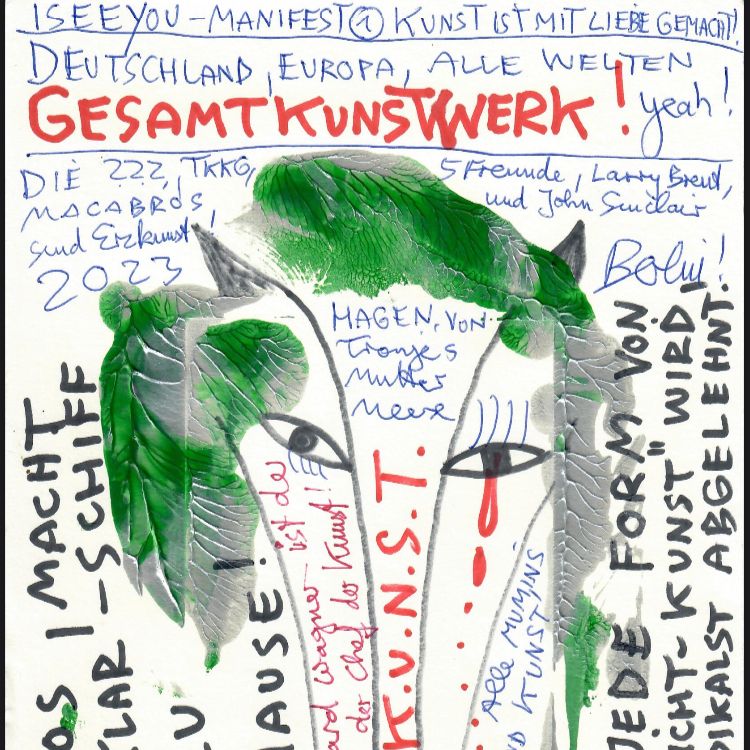 ISEEYOU-MANIFEST ① KUNST IST MIT LIEBE GEMACHT!
DEUTSCHLAND, EUROPA, ALLE WELTEN
GESAMTKUNSTWERK! yeah!
DIE ???, TKKG,
MACABROS,
sind Erzkunst,
2023
5 Freunde, Larry Brent,
und John Sinclair
Bolui!
HAGEN VON
Tronjes
Mutter
Meere
MACHT
LAR-SCHIFF
AUSE!
ard Wagner ist der
der Chef der Kunst!
K.U.N.S.T.
Alle MUMINS
D KUNST
JEDE FORM VON
ICHT-KUNST" WIRD,
DIKALST ABGELEHNT.